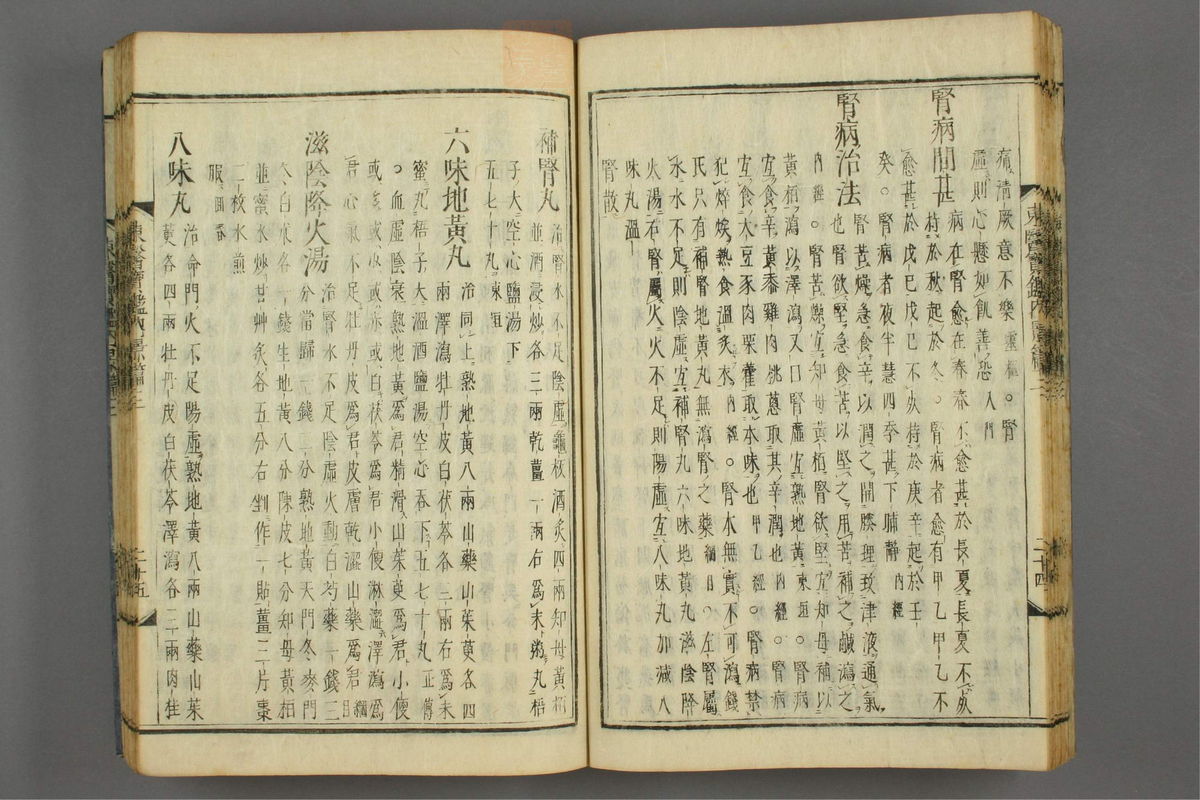 痛清厥意不樂靈樞○腎
虛則心懸如飢善恐入門
腎病間甚
病在腎愈在春春不愈甚於長夏長夏不死
持於秋起於冬○腎病者愈有甲乙甲乙不
愈甚於戊己戊己不死持於庚辛起於壬
癸○腎病者夜半慧四季甚下晡靜內經
腎病治法
腎苦燥急食辛以潤之開腠理致津液通氣
也腎欲堅急食苦以堅之用苦補之鹹瀉之
內經○腎苦燥宜知母黃栢腎欲堅宜知母補以
黃栢瀉以澤瀉又曰腎虛宜熟地黃東垣○腎病
宜食辛黃黍雞肉桃蔥取其辛潤也內經○腎病
宜食大豆豕肉栗藿取本味也甲乙經○腎病禁
犯焠㶼熱食溫炙衣內經○腎本無實不可瀉錢
氏只有補腎地黃丸無瀉腎之藥綱目○左腎屬
水水不足則陰虛宜補腎丸六味地黃丸滋陰降
火湯右腎屬火火不足則陽虛宜八味丸加減八
味丸溫
腎散
補腎丸
治腎水不足陰虛龜板酒炙四兩知母黃栢
並酒浸炒各三兩乾薑一兩右爲末粥丸梧
子大空心鹽湯下
五七十丸東垣
六味地黃丸
治同上熟地黃八兩山藥山茱萸各四
兩澤瀉牡丹皮白茯苓各三兩右爲末
蜜丸梧子大溫酒鹽湯空心吞下五七十丸正傳
○血虛陰衰熟地黃爲君精滑山茱萸爲君小便
或多或少或赤或白茯苓爲君小便淋澁澤瀉爲
君心氣不足牡丹皮爲君皮膚乾澁山藥爲君綱目
滋陰降火湯
治腎水不足陰虛火動白芍藥一錢三
分當歸一錢二分熟地黃天門冬麥門
冬白朮各一錢生地黃八分陳皮七分知母黃栢
並蜜水炒甘艸炙各五分右剉作一貼薑三片棗
二枚水煎
服回春
八味丸
治命門火不足陽虛熟地黃八兩山藥山茱
萸各四兩牡丹皮白茯苓澤瀉各三兩肉桂